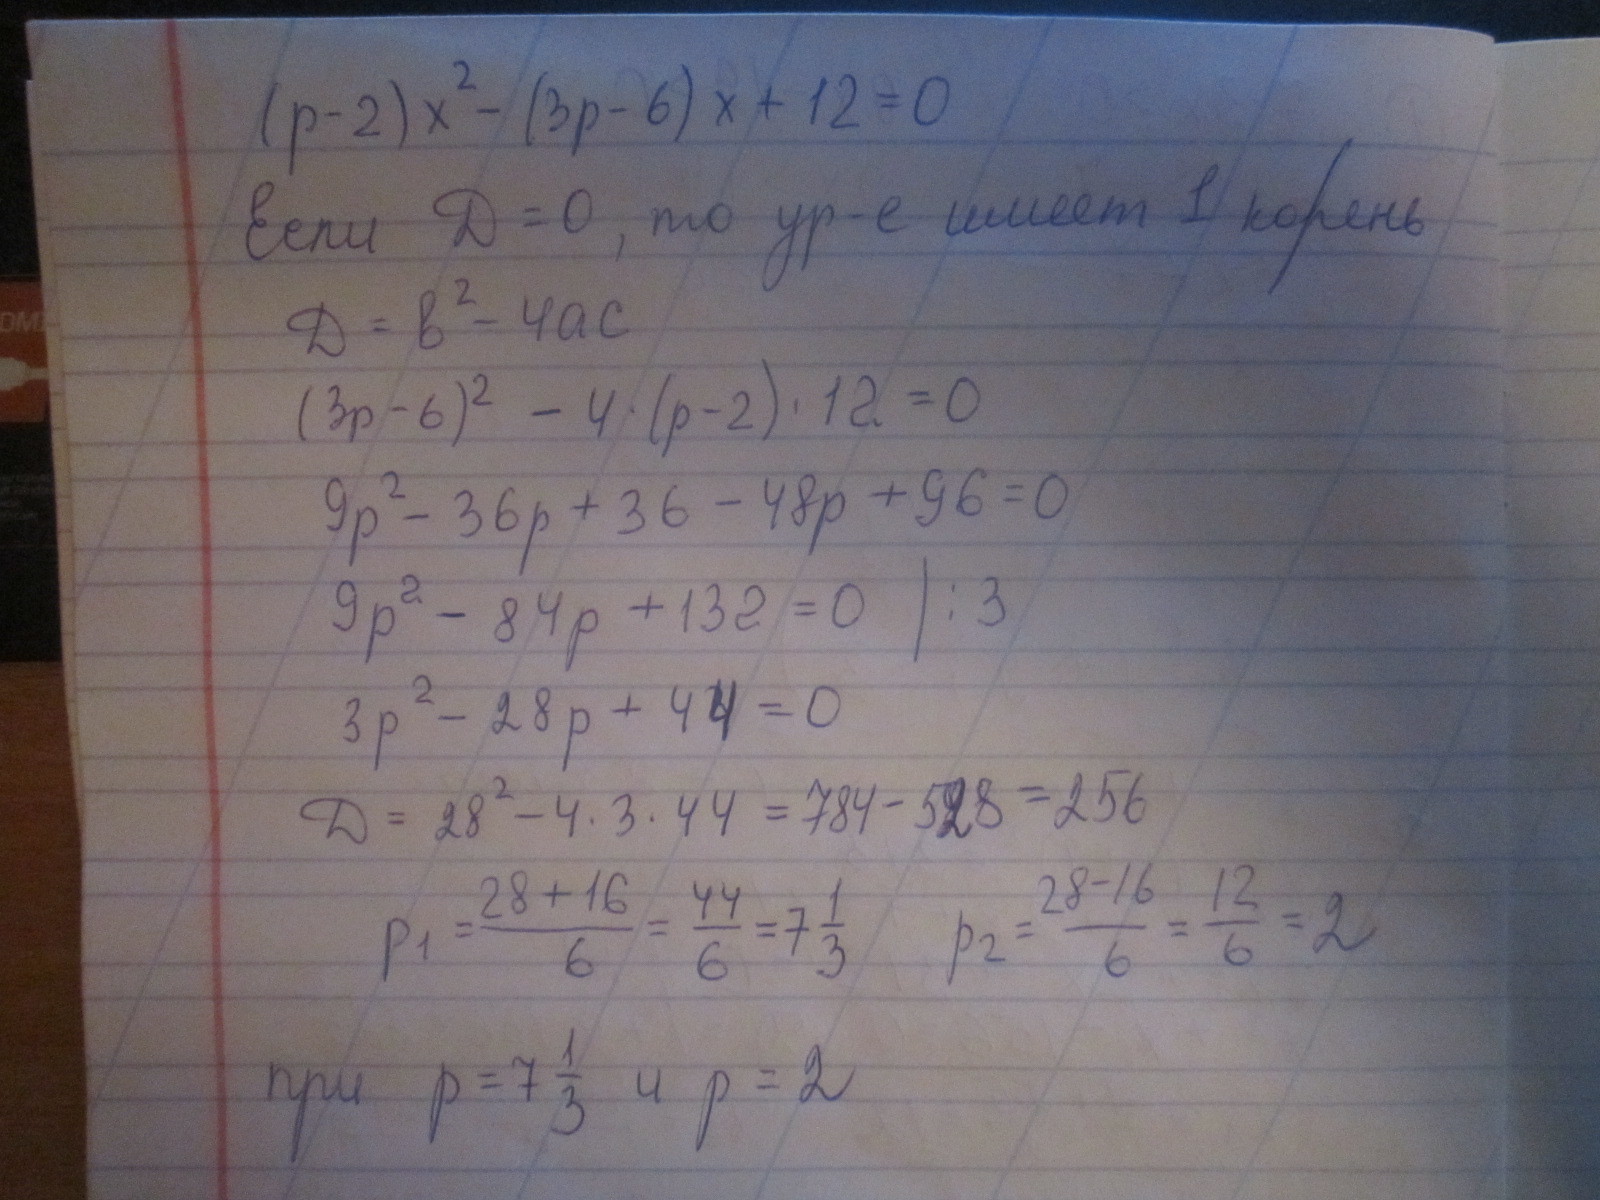 (p-2)x² - (3p-6)x + 12 = 0
Если D = 0, то ур-е имеет 1 корень
D = b² - 4ac
(3p-6)² - 4·(p-2)·12 = 0
9p² - 36p + 36 - 48p + 96 = 0
9p² - 84p + 132 = 0 | : 3
3p² - 28p + 44 = 0
D = 28² - 4·3·44 = 784 - 528 = 256
p₁ = (28+16)/6 = 44/6 = 7 1/3   p₂ = (28-16)/6 = 12/6 = 2
при p = 7 1/3 и p = 2